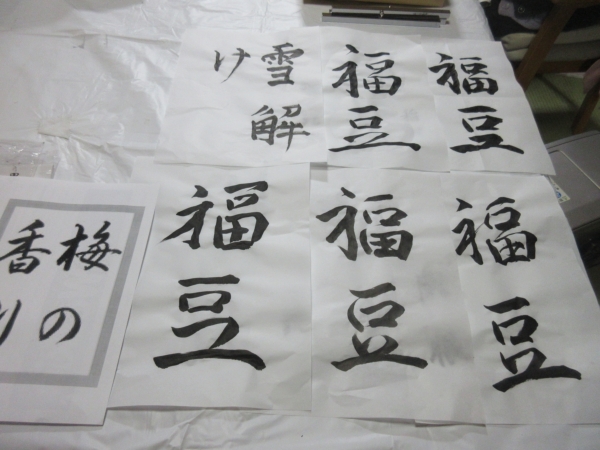 雪解
け
福豆
福豆
福豆
福豆
福豆
梅の
香り